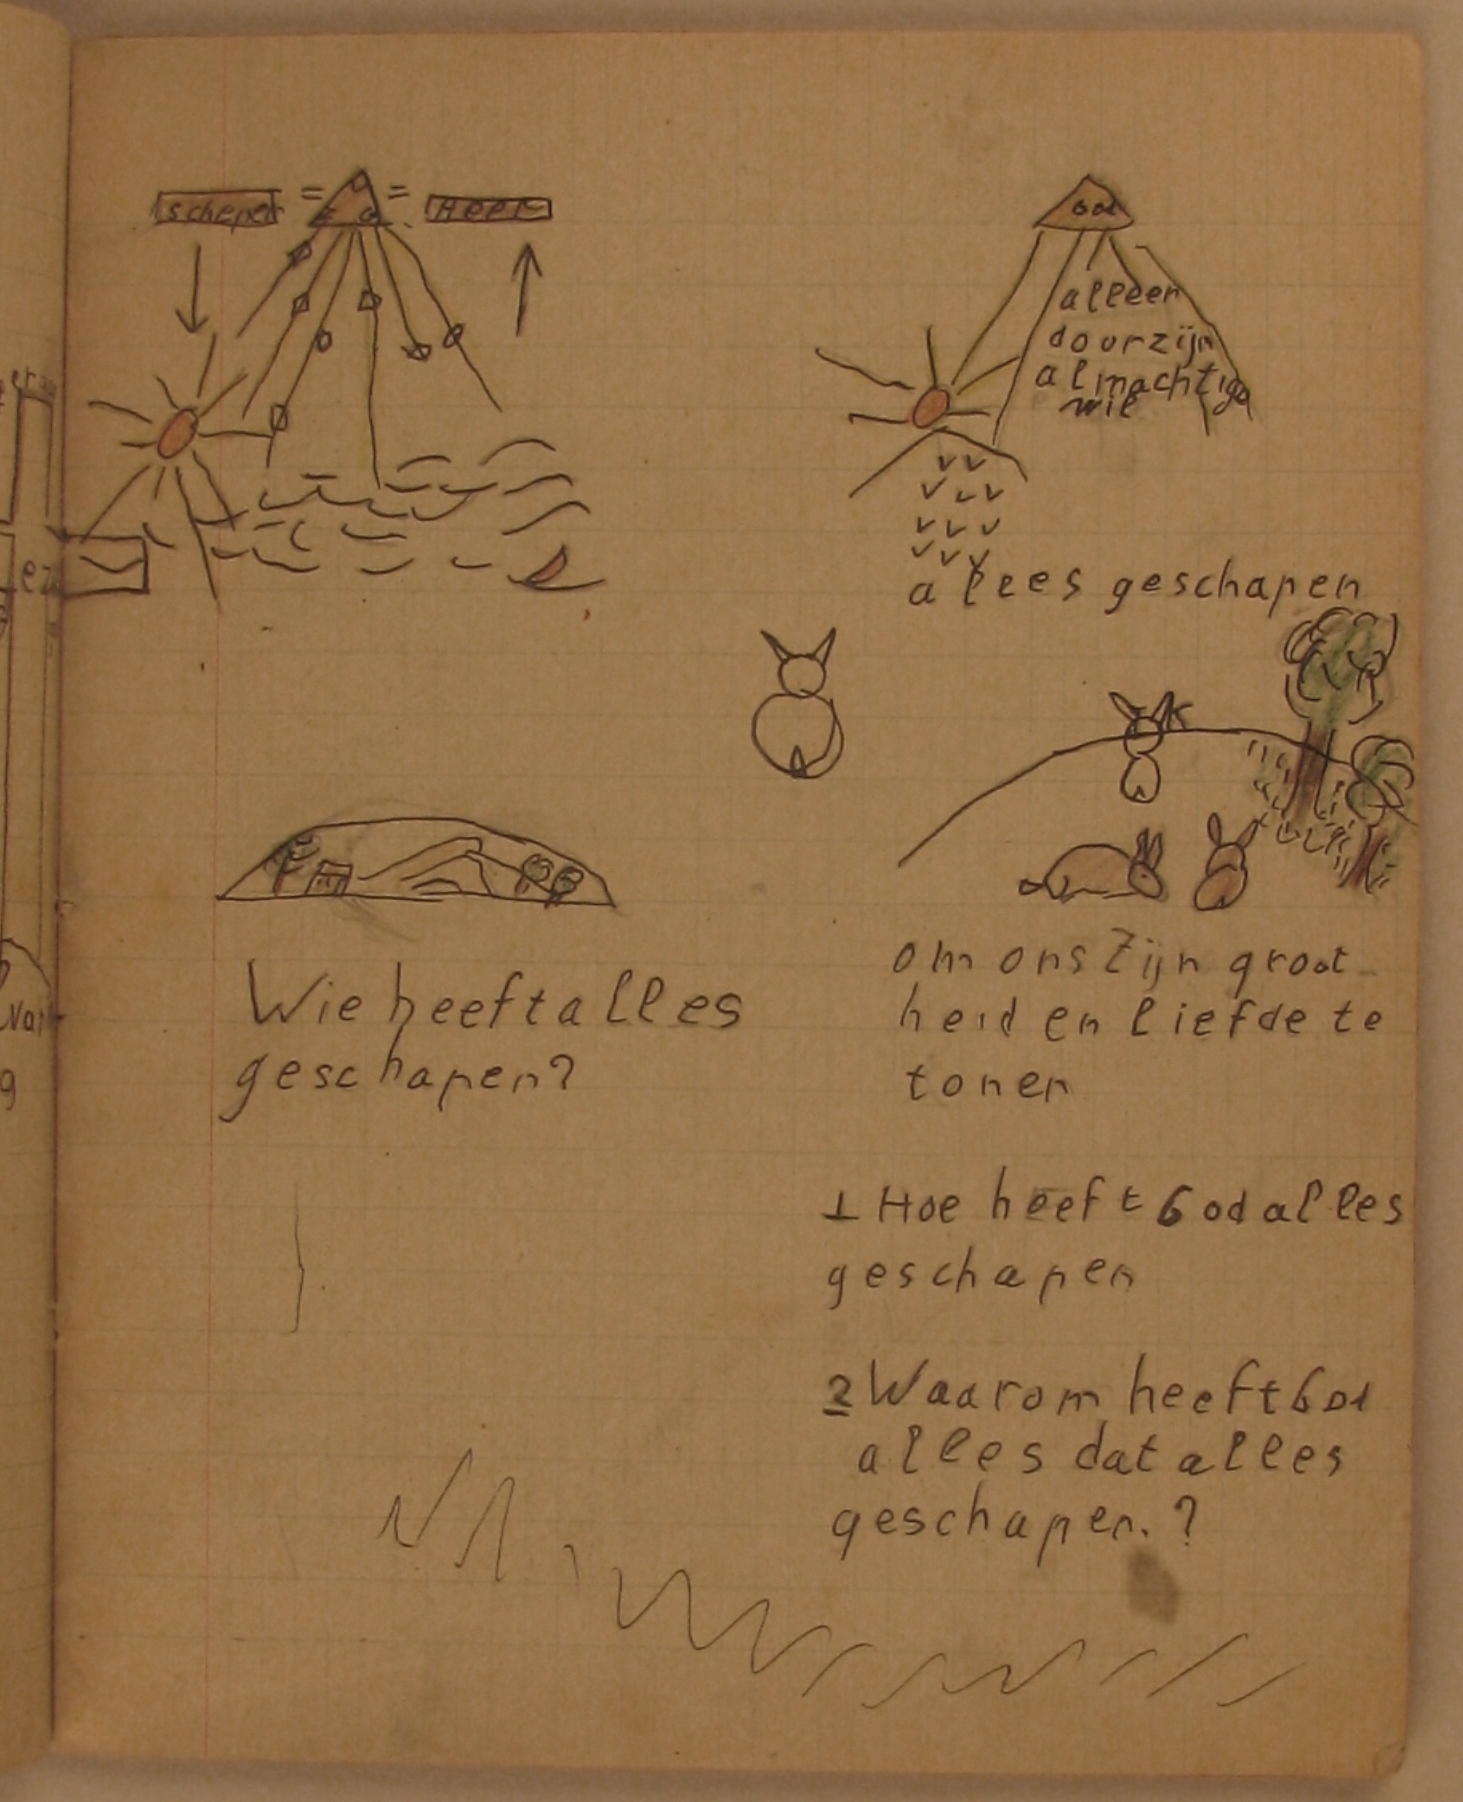 schepen = = Heer
Wie heeft alles
geschapen?
God
alleen
door zijn
almachtige
wil
allees geschapen
om ons Zijn groot
heid en liefde te
tonen
1 Hoe heeft God alles
geschapen
2 Waarom heeft God
alles dat alles
geschapen.?